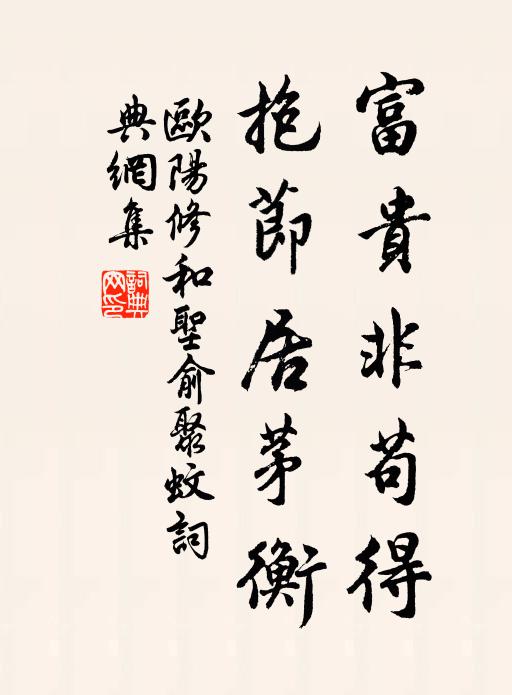 富貴非苟得
抱節居茅衡
歐陽修和聖俞聚蚊詞
典網集
詞典网印